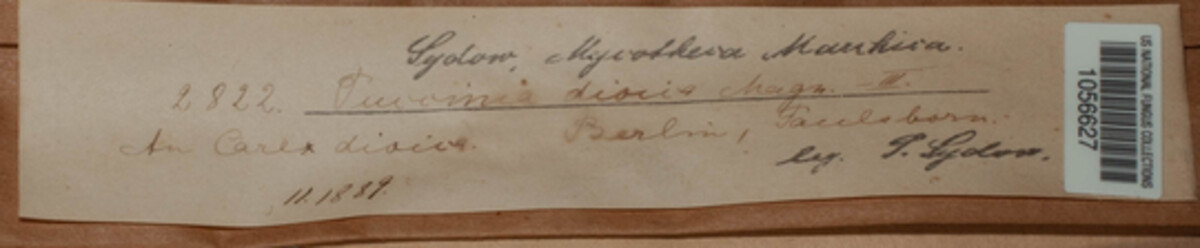 Sydow, Mycotheca Marchica.
2822. Puccinia dioicae Magn. – III.
An Carex dioica. Berlin, Paulsborn.
leg. P. Sydow.
11.1889.
US NATIONAL FUNGUS COLLECTIONS
1056627